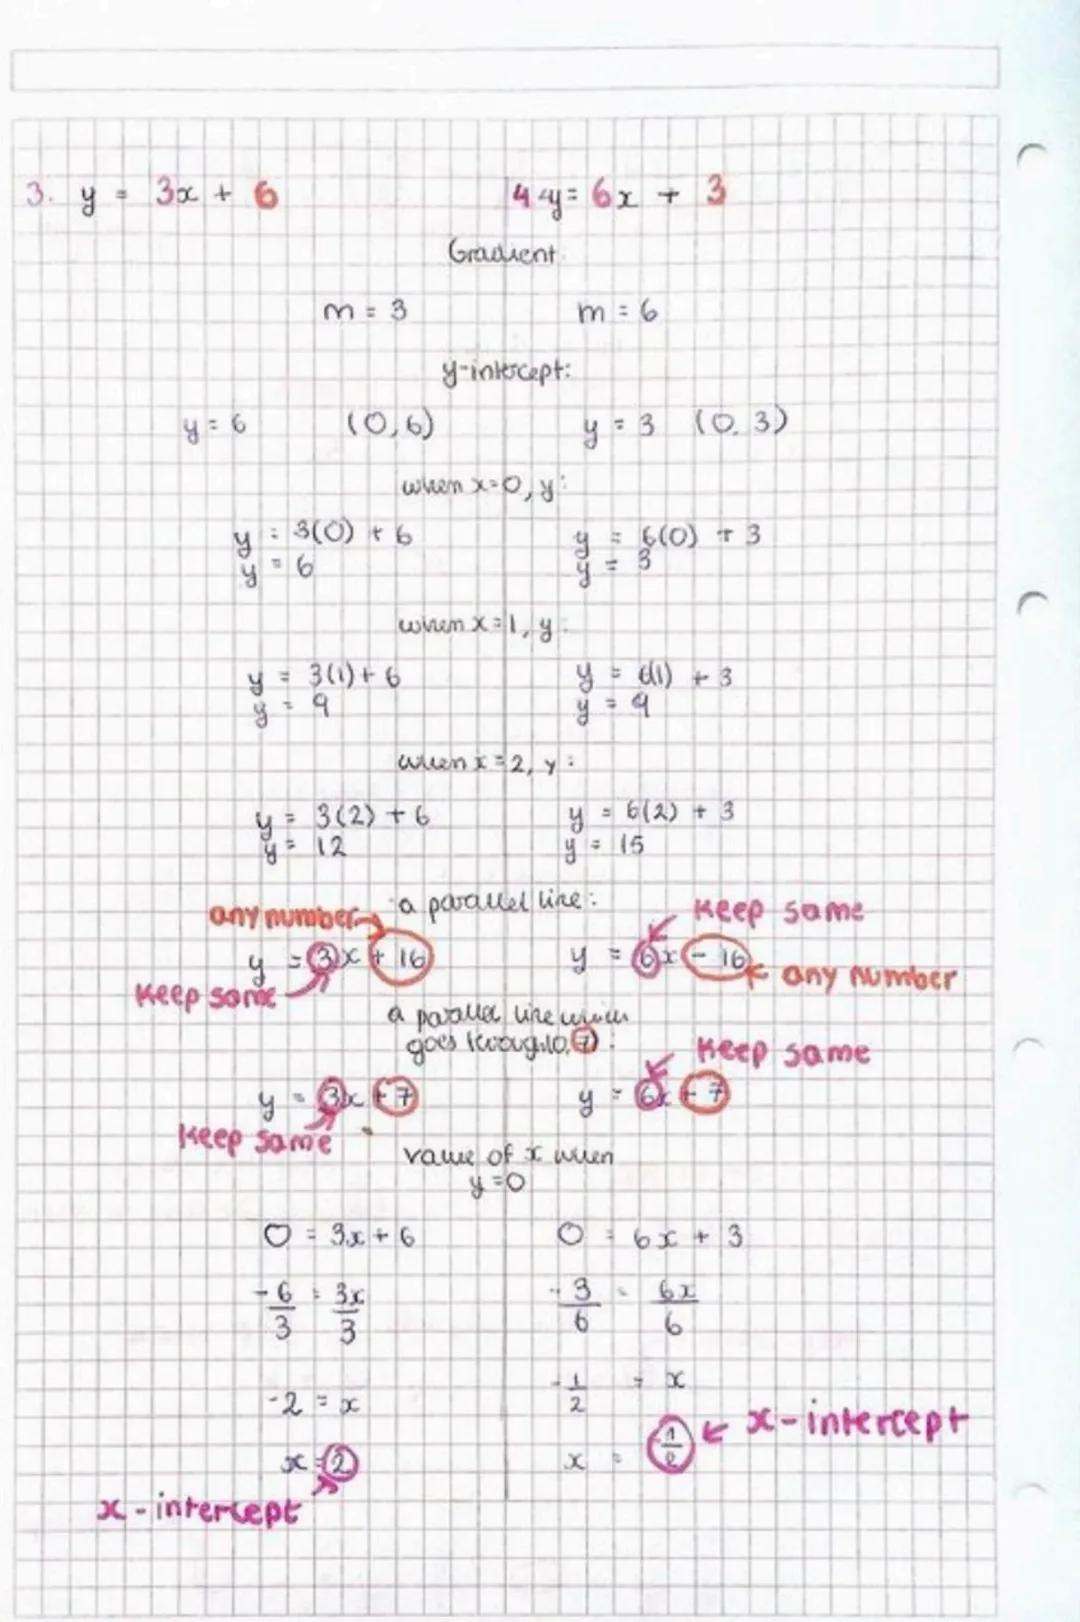 3. y = 3x + 6 4. y = 6x + 3
Gradient
m = 3 m = 6
y-intercept:
y = 6 (0,6) y = 3 (0, 3)
when x=0, y:
y = 3(0) + 6 y = 6(0) + 3
y = 6 y = 3
when x=1, y:
y = 3(1) + 6 y = 6(1) + 3
y = 9 y = 9
when x=2, y:
y = 3(2) + 6 y = 6(2) + 3
y = 12 y = 15
a parallel line:
any number keep same
y = 3x + 16 y = 6x - 16
keep same any number
a parallel line which
goes through (0,7):
keep same
y = 3x + 7 y = 6x + 7
keep same
value of x when
y=0
0 = 3x + 6 0 = 6x + 3
-6/3 = 3x/3 -3/6 = 6x/6
-2 = x -1/2 = x
x = -2 x = -1/2 x-intercept
x-intercept